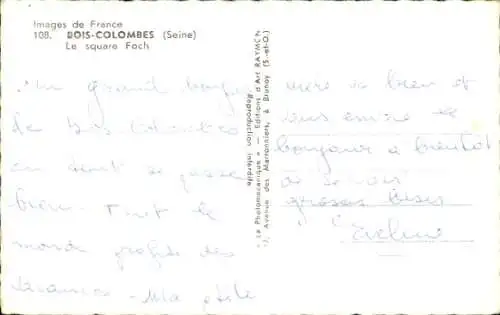 Images de France
108. BOIS-COLOMBES (Seine)
Le square Foch
Un grand bonjour
de Bois Colombes
où tout se passe
bien. Tout le
monde profite des
vacances. Ma ptite
"La Photomécanique" — Editions d'Art RAYMON
7, Avenue des Marronniers, à Brunoy (S.-et-O.)
Reproduction interdite
mère va bien et
vous envoie le
bonjour à bientôt
grosses bises
Eveline